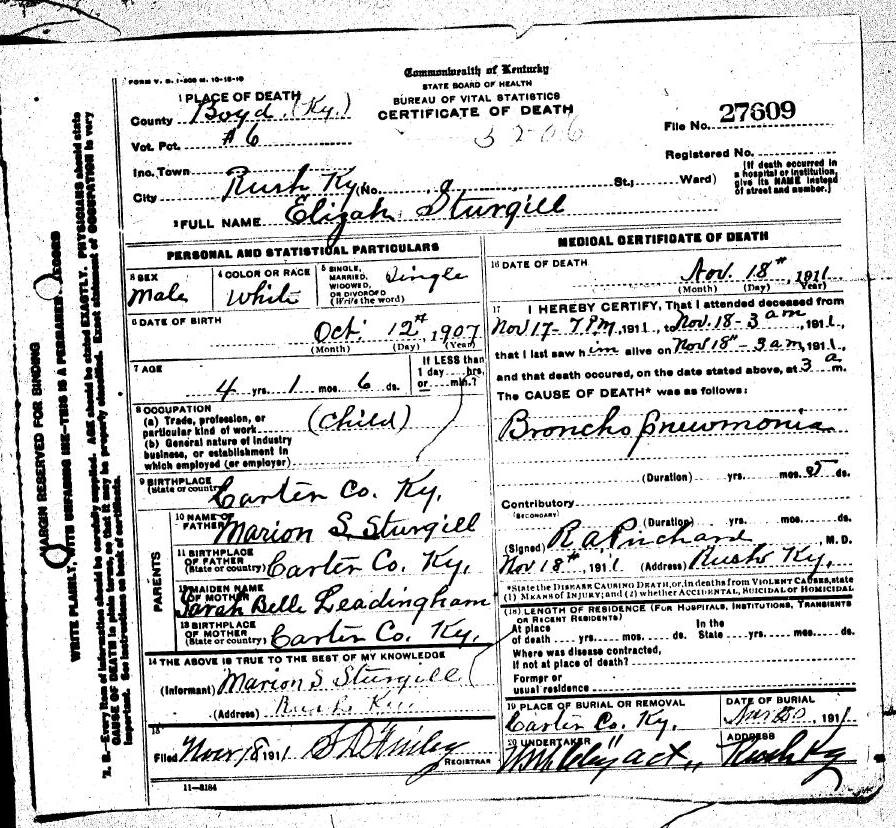 FORM V. S. 1-200 M. 10-15-10
Commonwealth of Kentucky
STATE BOARD OF HEALTH
BUREAU OF VITAL STATISTICS
CERTIFICATE OF DEATH
3206
File No. 27609
Registered No.
(If death occurred in a hospital or institution, give its NAME instead of street and number.)
1 PLACE OF DEATH
County Boyd (Ky.)
Vot. Pct. #6
Inc. Town
City Rush Ky (No. St., Ward)
2 FULL NAME Elizah Sturgill
PERSONAL AND STATISTICAL PARTICULARS
3 SEX Male
4 COLOR OR RACE White
5 SINGLE, MARRIED, WIDOWED, OR DIVORCED (Write the word) Single
6 DATE OF BIRTH Oct. 12th, 1907
(Month) (Day) (Year)
7 AGE 4 yrs. 1 mos. 6 ds.
If LESS than 1 day hrs. or min.?
8 OCCUPATION
(a) Trade, profession, or particular kind of work (Child)
(b) General nature of industry business, or establishment in which employed (or employer)
9 BIRTHPLACE (State or country) Carter Co. Ky.
PARENTS
10 NAME OF FATHER Marion S Sturgill
11 BIRTHPLACE OF FATHER (State or country) Carter Co. Ky.
12 MAIDEN NAME OF MOTHER Sarah Belle Leadingham
13 BIRTHPLACE OF MOTHER (State or country) Carter Co. Ky.
14 THE ABOVE IS TRUE TO THE BEST OF MY KNOWLEDGE
(Informant) Marion S Sturgill
(Address) Rush Ky.
15
Filed Nov 18 1911
REGISTRAR
11-3184
MEDICAL CERTIFICATE OF DEATH
16 DATE OF DEATH Nov. 18th, 1911
(Month) (Day) (Year)
17 I HEREBY CERTIFY, That I attended deceased from
Nov 17 - 7 PM, 1911, to Nov. 18 - 3 am, 1911,
that I last saw him alive on Nov 18th - 3 am, 1911,
and that death occured, on the date stated above, at 3 a m.
The CAUSE OF DEATH* was as follows:
Broncho pneumonia
(Duration) yrs. mos. 5 ds.
Contributory
(SECONDARY)
(Duration) yrs. mos. ds.
(Signed) R A Prichard, M. D.
Nov 18th, 1911 (Address) Rush Ky.
*State the DISEASE CAUSING DEATH, or, in deaths from VIOLENT CAUSES, state
(1) MEANS OF INJURY; and (2) whether ACCIDENTAL, SUICIDAL OR HOMICIDAL
(18) LENGTH OF RESIDENCE (FOR HOSPITALS, INSTITUTIONS, TRANSIENTS
OR RECENT RESIDENTS)
At place of death yrs. mos. ds. In the State yrs. mos. ds.
Where was disease contracted,
if not at place of death?
Former or
usual residence
19 PLACE OF BURIAL OR REMOVAL Carter Co. Ky.
DATE OF BURIAL 1911
20 UNDERTAKER
ADDRESS Rush Ky
MARGIN RESERVED FOR BINDING
WRITE PLAINLY, WITH UNFADING INK—THIS IS A PERMANENT RECORD
N. B.—Every item of information should be carefully supplied. AGE should be stated EXACTLY. PHYSICIANS should state
CAUSE OF DEATH in plain terms, so that it may be properly classified. Exact statement of OCCUPATION is very
important. See instructions on back of certificate.